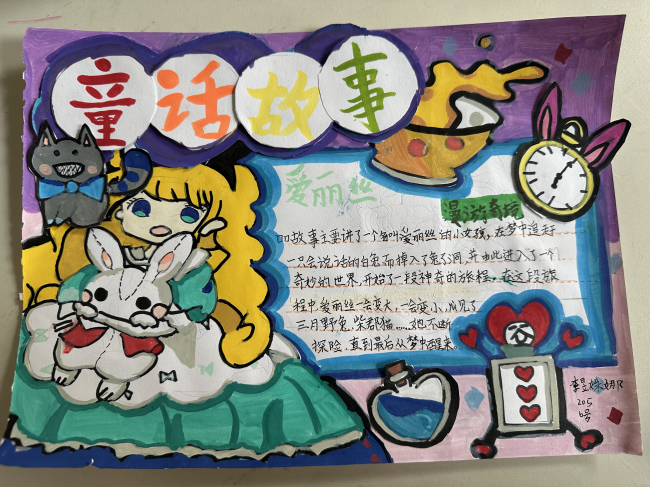 童话故事
爱丽丝
漫游奇境
故事主要讲了一个名叫爱丽丝的小女孩，在梦中追赶
一只会说话的白兔而掉入了兔子洞，并由此进入了一个
奇妙的世界，开始了一段神奇的旅程，在这段旅
程中，爱丽丝一会变大，一会变小，
三月野兔，柴郡猫……她不断
探险，直到最后从梦中醒来。
205
6号